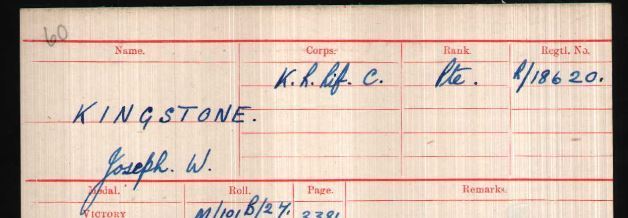 60
Name. Corps. Rank. Regtl. No.
K. R. Rif. C. Pte. R/18620.
KINGSTONE.
Joseph. W.
Medal. Roll. Page. Remarks.
VICTORY M/101B/27. 3381